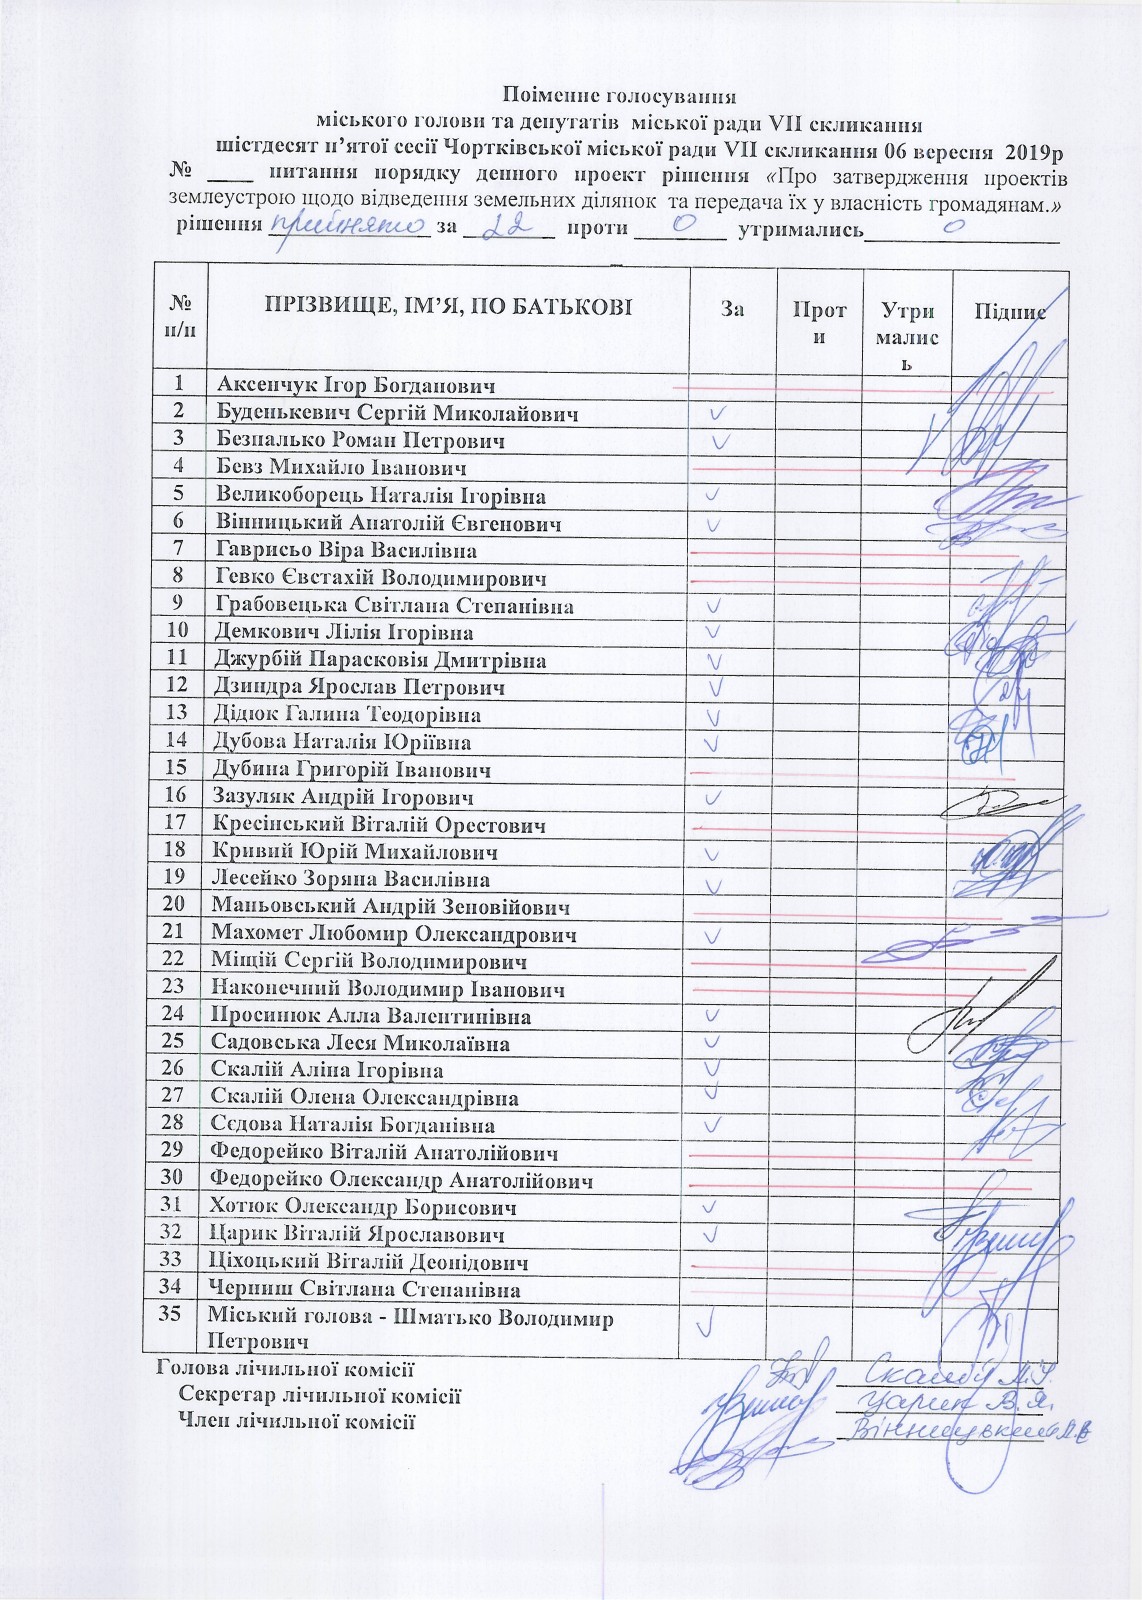 Поіменне голосування
міського голови та депутатів міської ради VII скликання
шістдесят п’ятої сесії Чортківської міської ради VII скликання 06 вересня 2019р
№ ____ питання порядку денного проект рішення «Про затвердження проектів
землеустрою щодо відведення земельних ділянок та передача їх у власність громадянам.»
рішення прийнято за 22 проти 0 утримались 0
№ п/п ПРІЗВИЩЕ, ІМ’Я, ПО БАТЬКОВІ За Прот и Утри малис ь Підпис
1 Аксенчук Ігор Богданович
2 Буденькевич Сергій Миколайович ✓
3 Безпалько Роман Петрович ✓
4 Бевз Михайло Іванович
5 Великоборець Наталія Ігорівна ✓
6 Вінницький Анатолій Євгенович ✓
7 Гаврисьо Віра Василівна
8 Гевко Євстахій Володимирович
9 Грабовецька Світлана Степанівна ✓
10 Демкович Лілія Ігорівна ✓
11 Джурбій Парасковія Дмитрівна ✓
12 Дзиндра Ярослав Петрович ✓
13 Дідюк Галина Теодорівна ✓
14 Дубова Наталія Юріївна ✓
15 Дубина Григорій Іванович
16 Зазуляк Андрій Ігорович ✓
17 Кресінський Віталій Орестович
18 Кривий Юрій Михайлович ✓
19 Лесейко Зоряна Василівна ✓
20 Маньовський Андрій Зеновійович
21 Махомет Любомир Олександрович ✓
22 Міщій Сергій Володимирович
23 Наконечний Володимир Іванович
24 Просинюк Алла Валентинівна ✓
25 Садовська Леся Миколаївна ✓
26 Скалій Аліна Ігорівна ✓
27 Скалій Олена Олександрівна ✓
28 Сєдова Наталія Богданівна ✓
29 Федорейко Віталій Анатолійович
30 Федорейко Олександр Анатолійович
31 Хотюк Олександр Борисович ✓
32 Царик Віталій Ярославович ✓
33 Ціхоцький Віталій Деонідович
34 Черниш Світлана Степанівна
35 Міський голова - Шматько Володимир ✓
Петрович
Голова лічильної комісії
Секретар лічильної комісії Царик В.Я.
Член лічильної комісії Вінницький А.Є